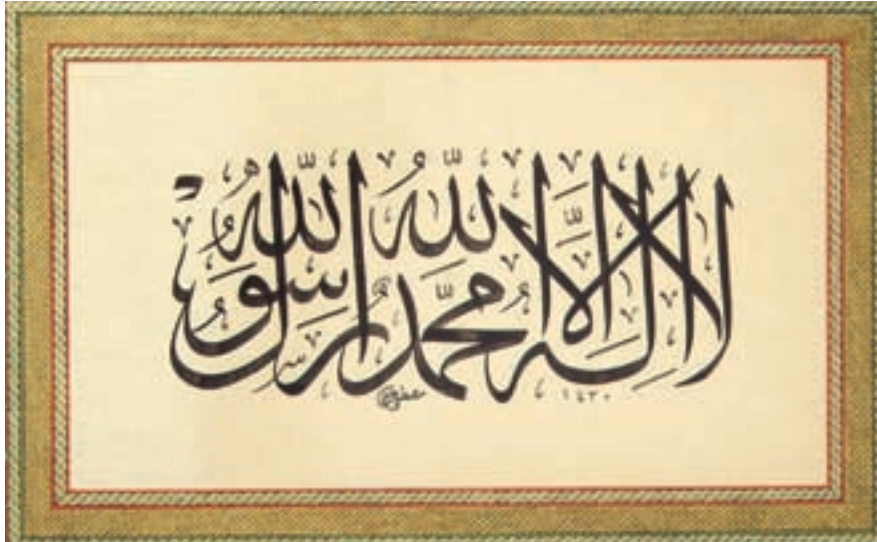 لا إله إلا الله محمد رسول الله
١٤٣٠